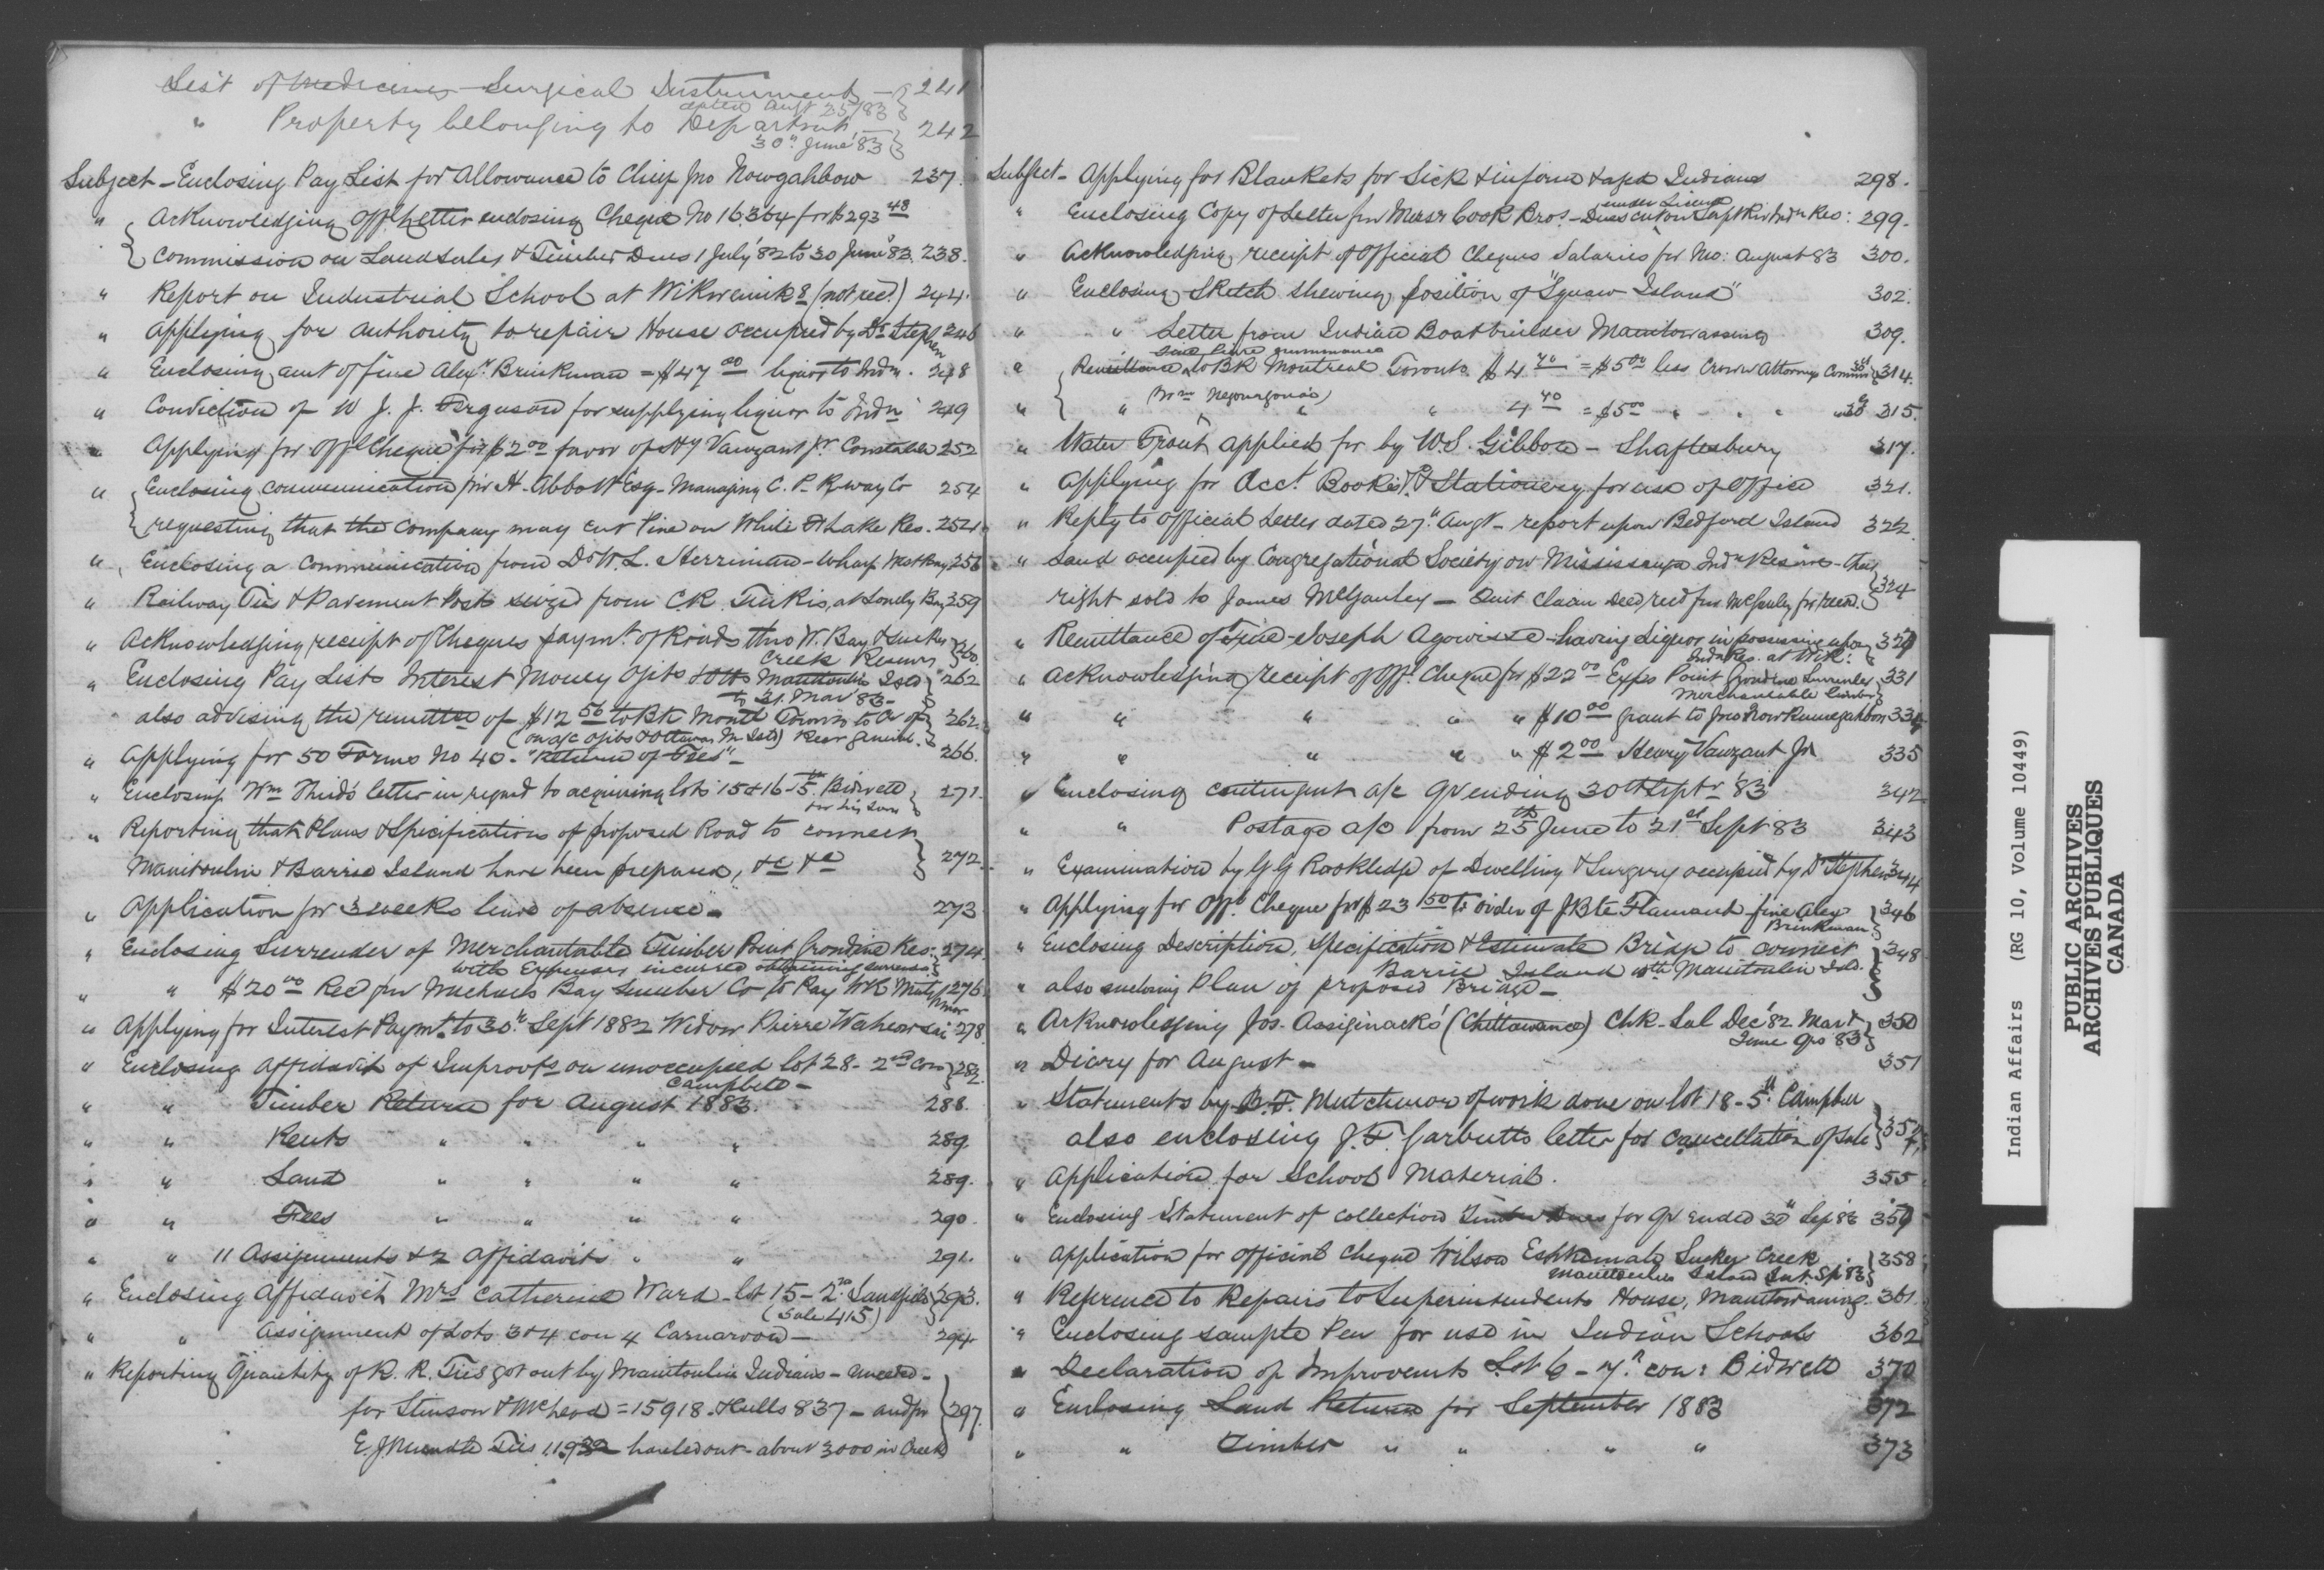 List of Medicines Surgical Instruments — 241
dated Augt 25/83
" Property belonging to Departmt 242
30th June '83
Subject - Enclosing Pay List for Allowance to Chief Jno Nowgahbow 237.
" Acknowledging Offl Letter enclosing Cheque No 16364 for $293 48
Commission on Land sales & Timber Dues 1 July '82 to 30 June '83. 238.
" Report on Industrial School at Wikwemik (not rec.) 244.
" Applying for authority to repair House occupied by Dr Stephen 246
" Enclosing amt of fine Alexr Brinkman = $47 00 liquor to Indn. 248
" Conviction of W J. J. Ferguson for supplying liquor to Indn 249
" Applying for Offl Cheque for $2 00 favor of Hy Vanzant Jr. Constable 252
" Enclosing communication frm H. Abbott Esq - Managing C. P. Rway Co 254
requesting that the Company may cut Pine on White Fh Lake Res. 254
" Enclosing a Communication from Dr W. L. Herriman - Wharf West Bay 256
" Railway Ties & Pavement Posts seized from CR. at Lonely Bay 259
" Acknowledging receipt of Cheques paymt. of Roads thro W. Bay & Sucker
Creek Reserves 260.
" Enclosing Pay Lists Interest Money Ojibs & Otts Manitoulin Isld 262
to 31. Mar '83 -
also advising the remittce of $12 56 to BK Montl Toronto to Cr of 262.
(on a/c Ojibs & Ottawas M. Isld) Recr General.
" Applying for 50 Forms No 40 - "Return of Fees" - 266.
" Enclosing Wm Third's letter in regard to acquiring lots 15 & 16 - 5th Bidwell 271.
for his Sons
" Reporting that Plans & Specification of proposed Road to connect
Manitoulin & Barrie Island have been prepared, &c &c 272.
" Application for 3 weeks leave of absence - 273
" Enclosing Surrender of Merchantable Timber Point Grondine Res: 274.
with Expenses incurred obtaining surrender
" " $20 00 Recd frm Michaels Bay Lumber Co to Pay 276
" Applying for Interest Paymt. to 30th Sept 1882 Widow Pierre 278.
" Enclosing Affidavit of Improvts on unoccupied lot 28 - 2nd Con 282.
Campbell -
" " Timber Return for August 1883. 288.
" " Rents " " " " 289.
" " Land " " " " 289.
" " Fees " " " " 290.
" " 11 Assignments & 2 Affidavits " " 291.
" Enclosing Affidavit Mrs Catherine Ward - lot 15 - 2nd Sandfield 293.
(Sale 415)
" " Assignment of Lots 3 & 4 con 4 Carnarvon - 294
" Reporting Quantity of R. R. Ties got out by Manitoulin Indians -
for Stinson & McLeod = 15918 - Culls 837 - and for 297.
E. J. Ties 11932 hauled out - about 3000 in Creek
Subject - Applying for Blankets for Sick & infirm & aged Indians 298.
under License
" Enclosing Copy of Letter frm Messrs Cook Bros. - Dues cut on Servt Riv Indn Res: 299.
" Acknowledging receipt of Official Cheques Salaries for Mo: August 83 300.
" Enclosing Sketch shewing position of "Squaw Island" 302.
" " Letter from Indian Boatbuilder Manitowassing 309.
" Remittance to BK Montreal Toronto $4 70 = $5 00 less Crown Attorneys Commn 30 314.
" " " 4 70 = $5 00 " " " 30 315.
" Water Front applied for by W. S. Gibbon - Shaftesbury 317.
" Applying for Acct Books & Stationery for use of Office 321.
" Reply to Official Letter dated 27th Augt - report upon Bedford Island 322.
" Land occupied by Congregational Society on Mississauga Indn Reserve - their
right sold to James McGauley - Quit Claim Deed recd frm McGauley for record. 324
" Remittance of Fine - Joseph Agowissee - having Liquor in possession upon
Indn Res. at Wik:
" Acknowledging receipt of Offl Cheque for $22 00 Expns Point Grondine Surrender 331
Merchantable timber
" " " " " $10 00 grant to Jno 334
" " " " " $2 00 Henry Vanzant Jr 335
" Enclosing contingent a/c Qr ending 30th Septr '83 342
" " Postage a/c from 25th June to 21st Sept 83 343
" Examination by G G Rookledge of Dwelling & Surgery occupied by Dr Stephen 344
" Applying for Offl Cheque for $23 50 to order of J Bte Flamand fine Alex 346
Brinkman
" Enclosing Description, Specification & Estimate Bridge to connect 348
Barrie Island with Manitoulin Isld.
" also enclosing Plan of proposed Bridge -
" Acknowledging Jos. Assiginack's (Chittawance) Chk - Sal Dec '82 Mar & 350
June Qrs 83
" Diary for August - 351
" Statements by B. F. Mutchmor of work done on lot 18 - 5th Campbell
also enclosing J. F. Garbutts letter for cancellation of sale
" Application for School Material. 355
" Enclosing Statement of collections Timber Dues for Qr ended 30th Sep 83
" Application for official cheque Wilson Eshkemah Sucker Creek 358
Manitoulin Island Int. Sp 83
" Reference to Repairs to Superintendents House, Manitowaning. 361.
" Enclosing sample Pen for use in Indian Schools 362
" Declaration of Improvemts Lot 6 - 7th con: Bidwell 370
" Enclosing Land Return for September 1883 372
" " Timber " " " " 373
Indian Affairs (RG 10, Volume 10449)
PUBLIC ARCHIVES
ARCHIVES PUBLIQUES
CANADA